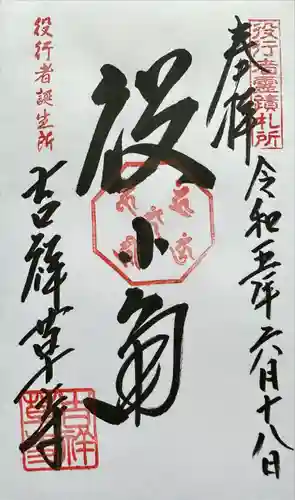 役行者霊蹟札所
奉拝
令和五年六月十八日
役小角
役行者誕生所
吉祥草寺